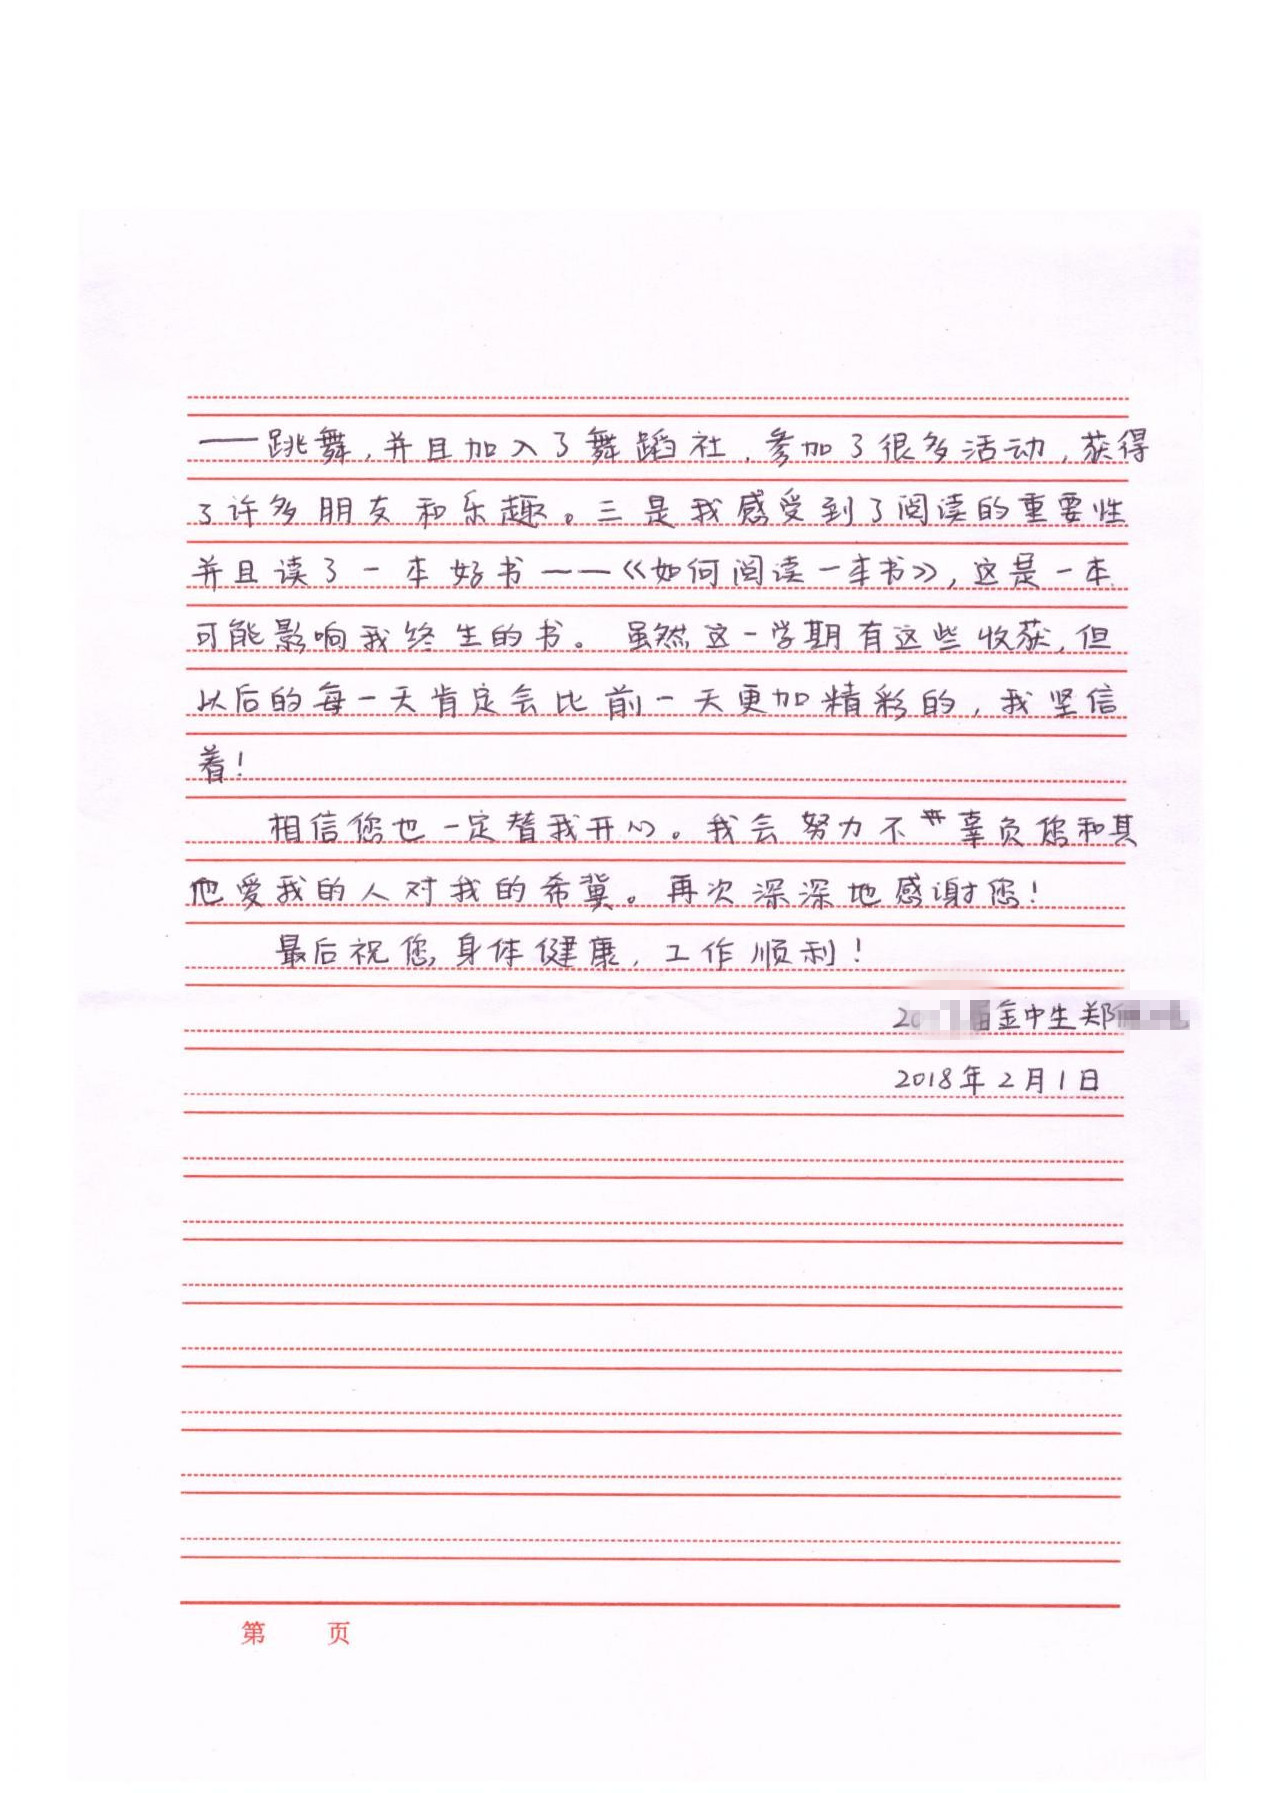 ——跳舞,并且加入了舞蹈社,参加了很多活动,获得
了许多朋友和乐趣。三是我感受到了阅读的重要性
并且读了一本好书——《如何阅读一本书》,这是一本
可能影响我终生的书。虽然这一学期有这些收获,但
以后的每一天肯定会比前一天更加精彩的,我坚信
着!
相信您也一定替我开心。我会努力不辜负您和其
他爱我的人对我的希冀。再次深深地感谢您!
最后祝您身体健康,工作顺利!
届金中生郑
2018年2月1日
第 页